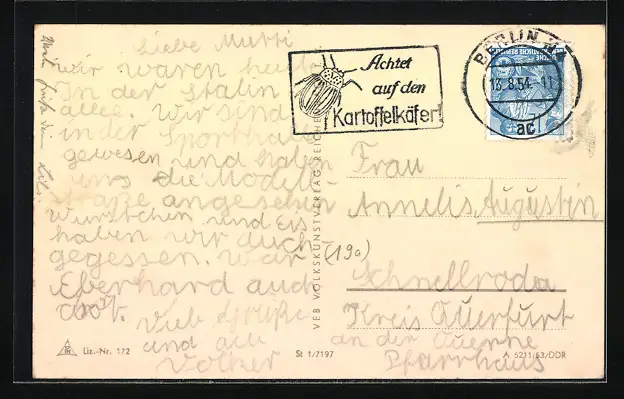 Liebe Mutti
wir waren heute
In der Stalin
allee. Wir sind
in der Sporthalle
gewesen und haben
uns die Modell-
straße angesehen
Würstchen und Eis
haben wir auch
gegessen. War
Eberhard auch
dort.
Viele Grüße
und
Volker
Achtet
auf den
Kartoffelkäfer!
BERLIN
13.8.54.-11
ac
VEB VOLKSKUNSTVERLAG REICHE
Frau
Annelis Augustin
(19a)
Schnellroda
Kreis Querfurt
an der Querne
Pfarrhaus
Liz.-Nr. 172
St 1/7197
A 5211/53/DDR